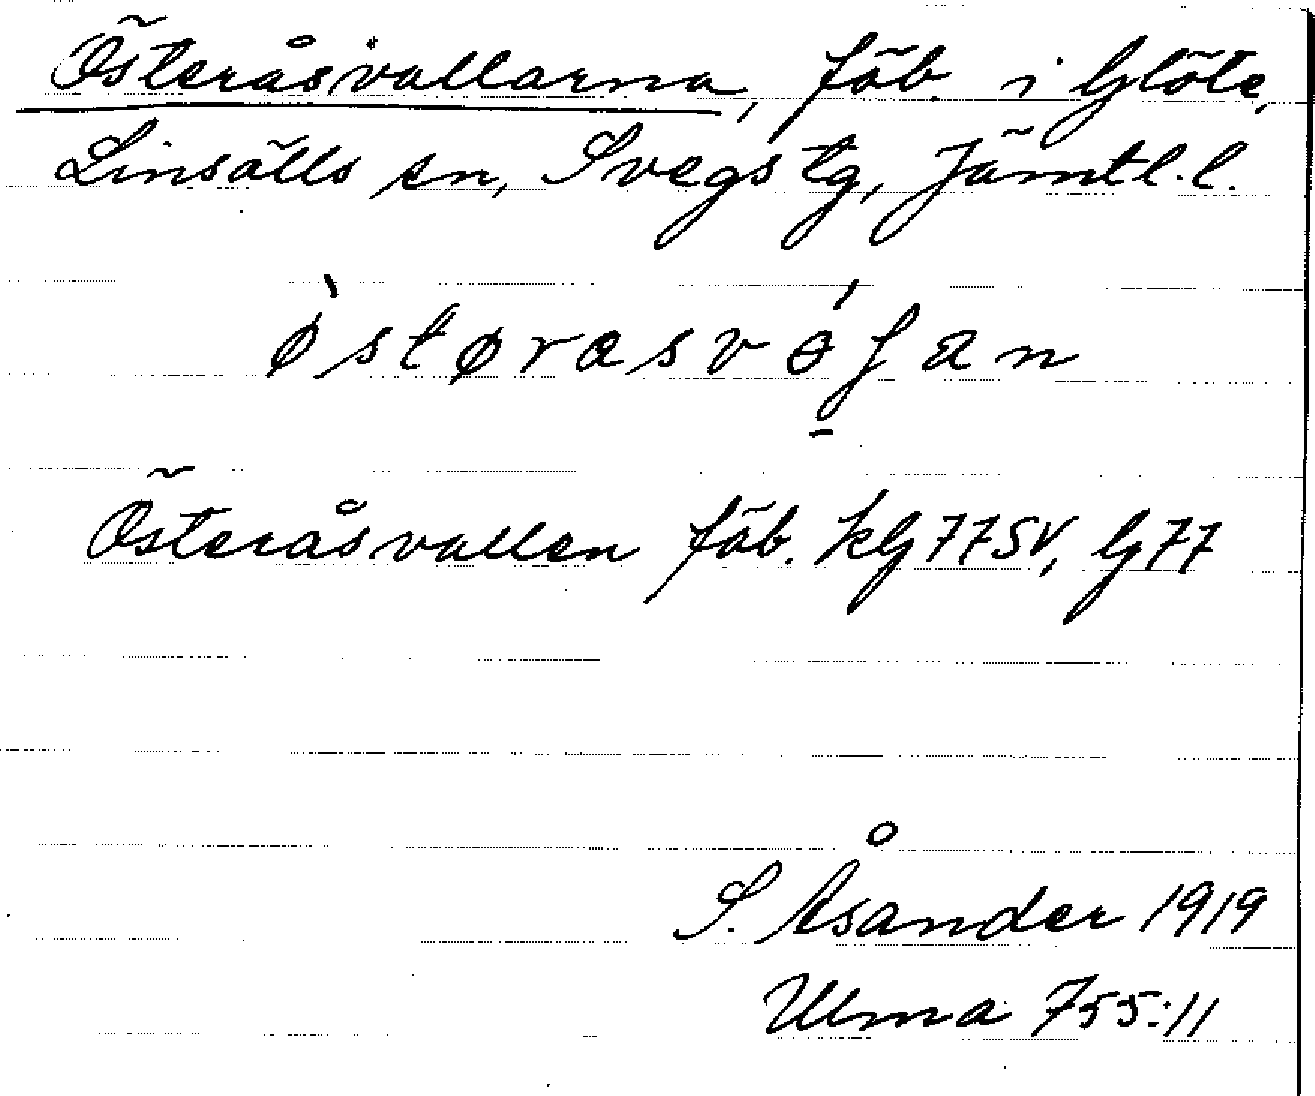 Österåsvallarna, fäb. i Glöte,
Linsälls sn, Svegs tg, Jämtl.l.
ø̀størasvə́ʃan
Österåsvallen fäb. kG77SV, G77
S. Åsander 1919
Ulma 755:11